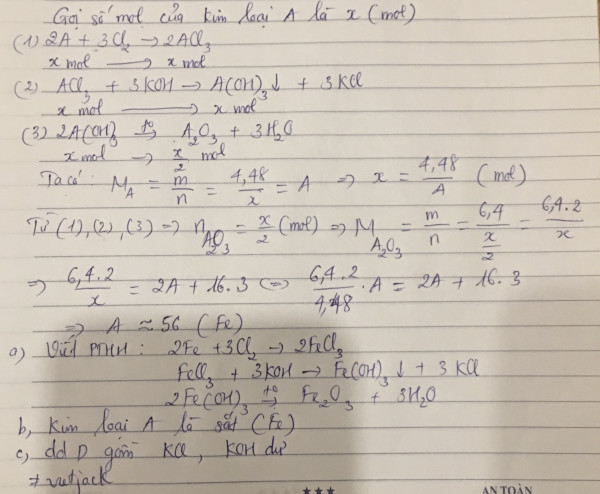 Gọi số mol của kim loại A là x (mol)
(1) 2A + 3Cl₂ → 2ACl₃
x mol ⟶ x mol
(2) ACl₃ + 3KOH → A(OH)₃↓ + 3KCl
x mol ⟶ x mol
(3) 2A(OH)₃ –t°→ A₂O₃ + 3H₂O
x mol → x/2 mol
Ta có: M_A = m/n = 4,48/x = A => x = 4,48/A (mol)
Từ (1),(2),(3) => n_A₂O₃ = x/2 (mol) => M_A₂O₃ = m/n = 6,4/(x/2) = 6,4.2/x
=> 6,4.2/x = 2A + 16.3 <=> 6,4.2/4,48 . A = 2A + 16.3
=> A ≈ 56 (Fe)
a) Viết PTHH: 2Fe + 3Cl₂ → 2FeCl₃
FeCl₃ + 3KOH → Fe(OH)₃↓ + 3KCl
2Fe(OH)₃ –t°→ Fe₂O₃ + 3H₂O
b, Kim loại A là sắt (Fe)
c, dd D gồm KCl, KOH dư
≠vietjack
★★★ AN TOÀN